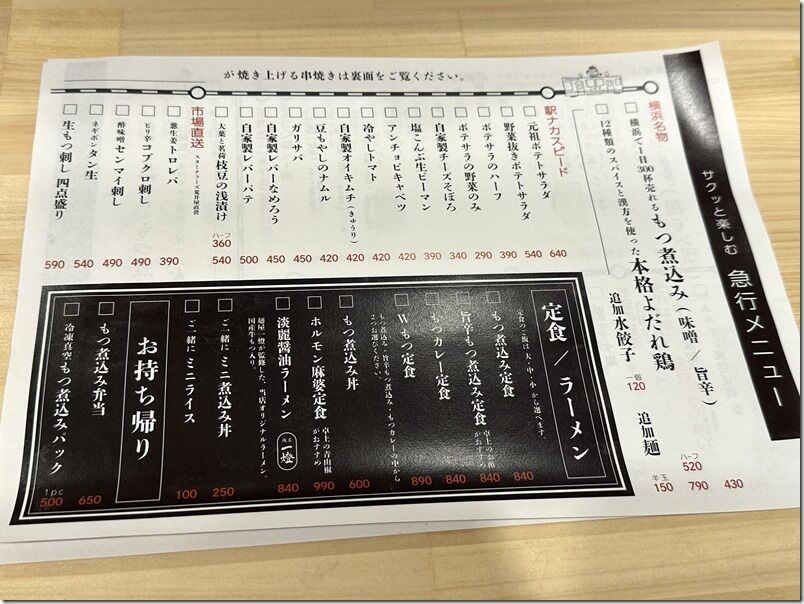 が焼き上げる串焼きは裏面をご覧ください。
サクッと楽しむ 急行メニュー
横浜名物
横浜で1日300杯売れるもつ煮込み(味噌/旨辛) 430
12種類のスパイスと漢方を使った本格よだれ鶏 ハーフ 520 790
追加水餃子 一個 120
追加麺 半玉 150
駅ナカスピード
元祖ポテトサラダ 640
野菜抜きポテトサラダ 540
ポテサラのハーフ 390
ポテサラの野菜のみ 290
自家製チーズそぼろ 390
塩こんぶ生ピーマン 340
アンチョビキャベツ 420
冷やしトマト 420
自家製オイキムチ(きゅうり) 420
豆もやしのナムル 420
ガリサバ 450
自家製レバーなめろう 450
自家製レバーパテ 500
大葉と茗荷 枝豆の浅漬け ハーフ 360 540
市場直送
葱生姜トロレバ 390
ピリ辛コブクロ刺し 490
酢味噌センマイ刺し 490
ネギポンタン生 540
生もつ刺し 四点盛り 590
定食/ラーメン
定食のご飯は大・中・小から選べます
もつ煮込み定食 840
旨辛もつ煮込み定食 840
もつカレー定食 840
Wもつ定食 890
もつ煮込み・旨辛もつ煮込み・もつカレーの中から
2つお選びください。
もつ煮込み丼 600
ホルモン麻婆定食 卓上の青山椒がおすすめ 990
淡麗醤油ラーメン 一燈 840
麺屋一燈が監修した、当店オリジナルラーメン。
国産牛もつ入り。
ご一緒に ミニ煮込み丼 250
ご一緒に ミニライス 100
お持ち帰り
もつ煮込み弁当 650
冷凍真空もつ煮込みパック 1pc 500